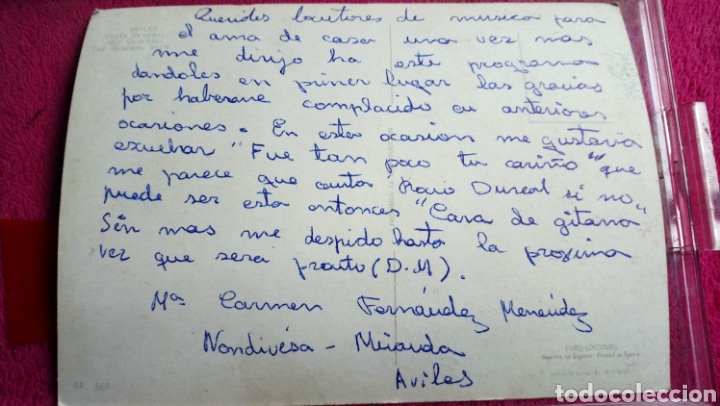 Querides locutores de musica para
el ama de casa una vez mas
me dirijo ha este programa
dandoles en primer lugar las gracias
por haberame complacido en anteriores
ocasiones. En esta ocasion me gustaria
escuchar "Fue tan poco tu cariño" que
me parece que canta Rocio Durcal si no
puede ser esta entonces "Cara de gitana"
Sin mas me despido hasta la proxima
vez que sera pronto (D.M).
Mª Carmen Fernández Menéndez
- Miranda
Aviles
AVILES
todocoleccion